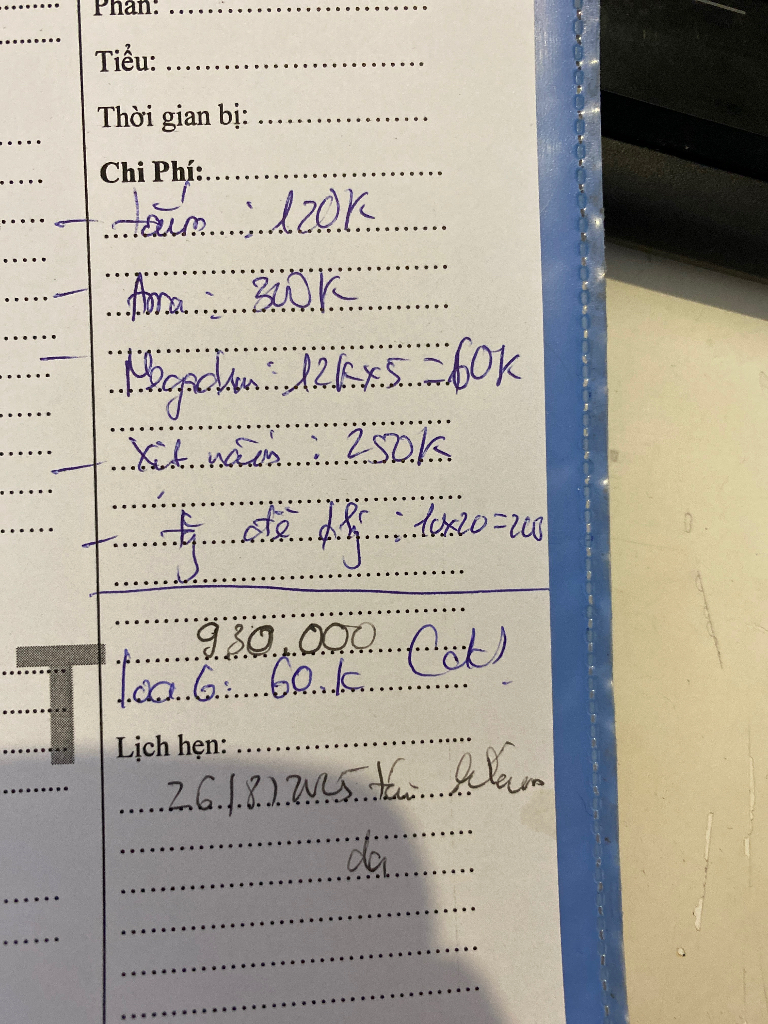 Phân:
Tiểu:
Thời gian bị:
Chi Phí:
- tắm : 120K
- Ama : 300K
- Megaderm : 12K x 5 = 60K
- Xịt nấm : 250K
- : 10x20=200
930.000
loa 6: 60.k (ok)
T
Lịch hẹn:
26/8/2025 tái khám
da